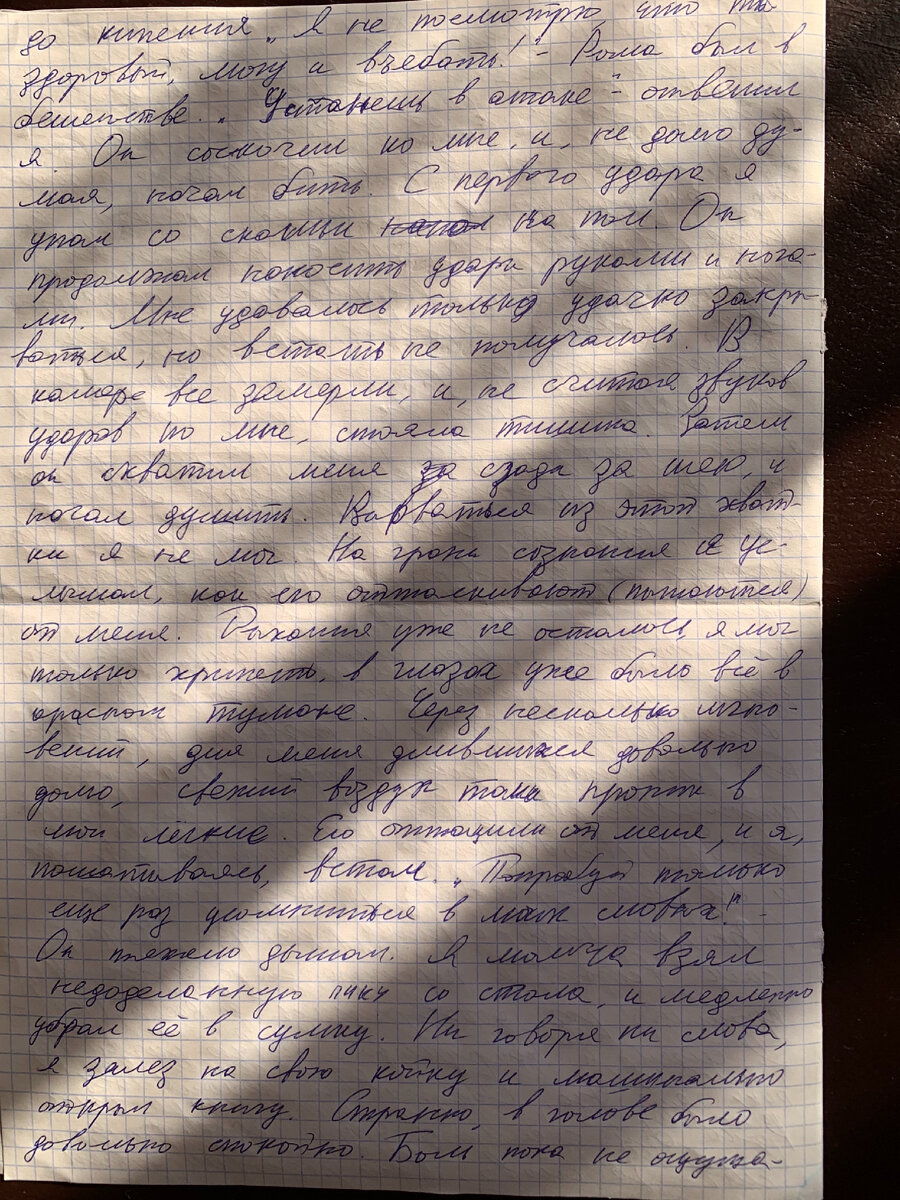 до кипения. „Я не посмотрю, что ты
здоровый, могу и въебать!" - Рома был в
бешенстве. „Устанешь в атаке" - ответил
я. Он соскочил ко мне, и, не долго ду-
мая, начал бить. С первого удара я
упал со скамьи на пол. Он
продолжал наносить удары руками и нога-
ми. Мне удавалось только удачно закры-
ваться, но встать не получалось. В
камере все замерли, и, не считая звуков
ударов по мне, стояла тишина. Затем
он схватил меня сзади за шею, и
начал душить. Вырваться из этой хват-
ки я не мог. На грани сознания я ус-
лышал, как его оттаскивают (пытаются)
от меня. Дыхания уже не осталось, я мог
только хрипеть, в глазах уже было всё в
красном тумане. Через несколько мгно-
вений, для меня длившихся довольно
долго, свежий воздух стал проникать в
мои лёгкие. Его оттащили от меня, и я,
пошатываясь, встал. „Попробуй только
еще раз усомниться в моих словах!" -
Он тяжело дышал. Я молча взял
недоделанную пику со стола, и медленно
убрал её в сумку. Ни говоря ни слова,
я залез на свою койку и машинально
открыл книгу. Странно, в голове было
довольно спокойно. Боль пока не ощуща-